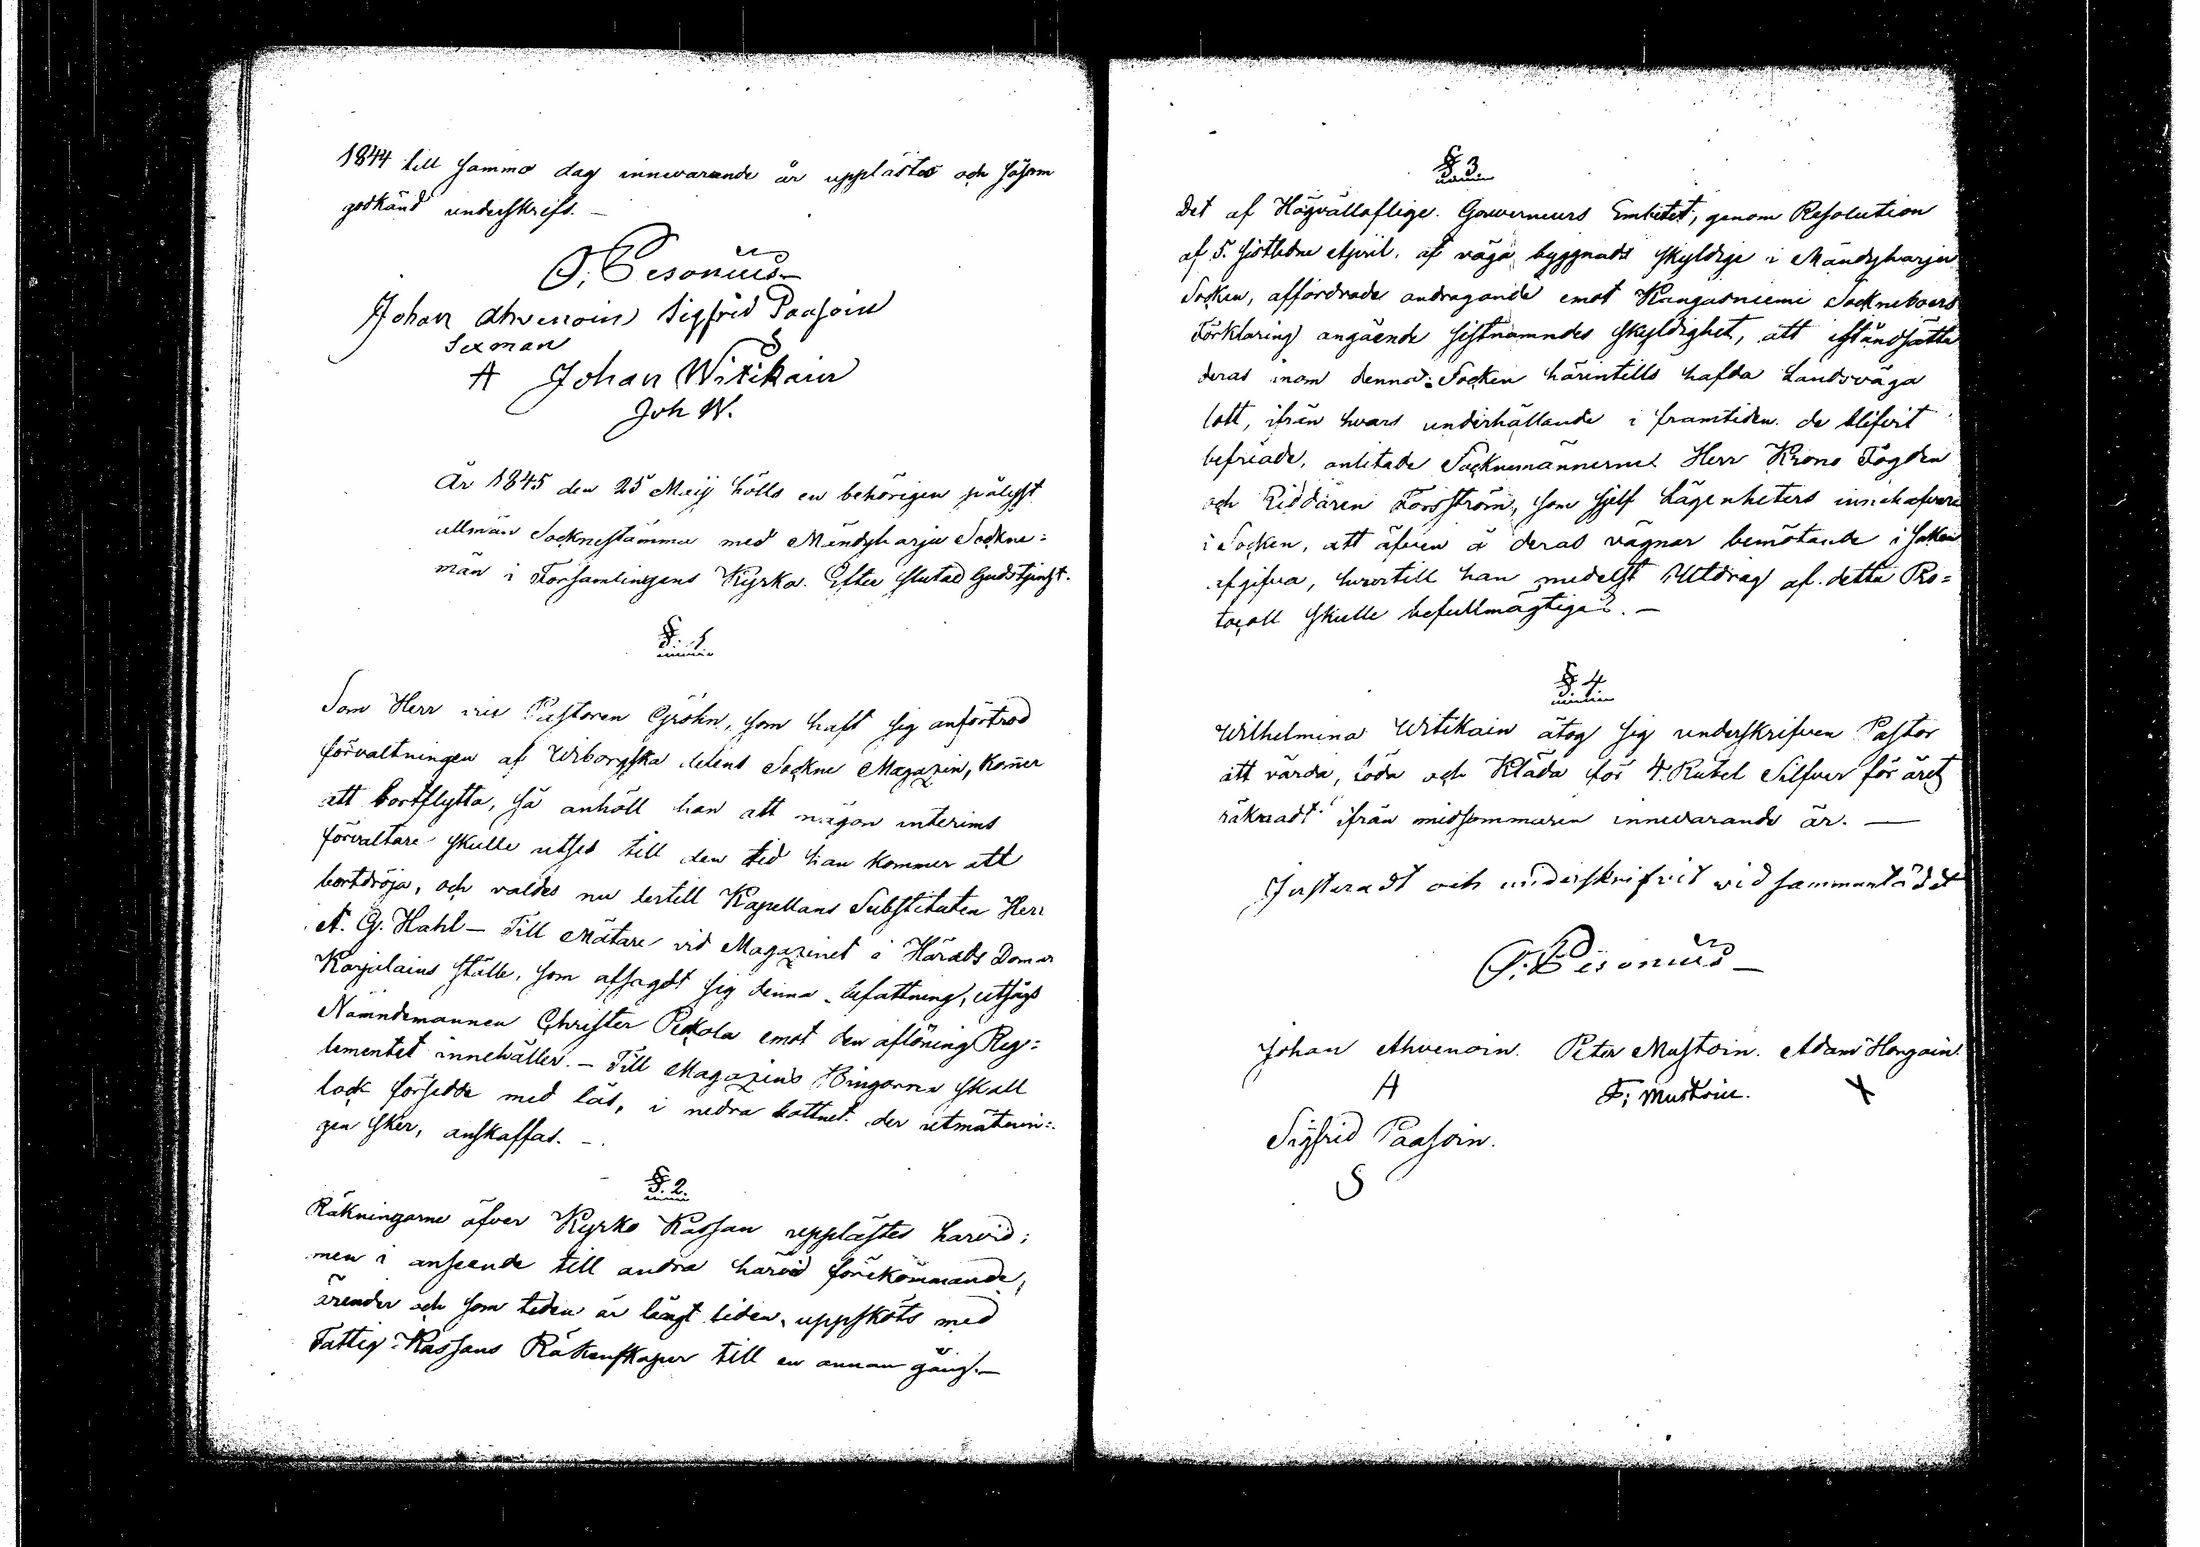 1844 till samma dag innevarande år upplästes och såsom
godkänd underskrefs. —
J. Pesonius
Johan Ahvenoin Sigfrid Paasoin
Sexman S
A Johan Witikain
Joh W.
År 1845 den 25 Maij hölls en behörigen pålyst
allmän Socknestämma med Mändyharju Sockne=
män i Församlingens Kyrka. Efter slutad Gudstjenst.
§. 1.
Som Herr vice Pastoren Gröhn, som haft sig anförtrod
förvaltningen af Wiborgska delens Sockne Magazin, kom̄er
att bortflytta, så anhöll han att någon interims
förvaltare skulle utses till den tid han kommer att
bortdröja, och valdes nu dertill Kapellans Substituten Herr
A. G. Hahl — Till Mätare vid Magazinet i Härads Domar
Karjalains ställe, som afsagdt sig denna befattning, utsågs
Nämndemannen Christer Pekola emot den aflöning Reg=
lementet innehåller. — Till Magazins Bingarne skall
lock försedde med lås, i nedra bottnet der utmätnin=
gen sker, anskaffas. —
§. 2.
Räkningarne öfver Kyrko Kassan upplästes härvid;
men i anseende till andra härvid förekommande
ärender och som tiden är långt liden, uppsköts med
Fattig-Kassans Räkenskaper till en annan gång. —
§ 3.
Det af Högvällofliga Gouverneurs Embetet, genom Resolution
af 5. sistledne April, af väga byggnads skyldige i Mändyharju
Socken, affordrade andragande emot Kangasniemi Sockneboers
Förklaring angående sistnämndes skyldighet, att iståndsätta
deras inom denna Socken härintills hafda Landsväga
lott, ifrån hvars underhållande i framtiden de blifvit
befriade, anlitade Socknemännerne Herr Krono Fogden
och Riddaren Forsström, som sjelf Lägenheters innehafvare
i Socken, att äfven å deras vägnar bemötande i saken
afgifva, hvartill han medelst Utdrag af detta Pro=
tocoll skulle befullmägtigas. —
§ 4.
Wilhelmina Witikain åtog sig underskrifven Pastor
att vårda, föda och kläda för 4 Rubel Silfver för året
räknadt ifrån midsommaren innevarande år. —
Justeradt och underskrifvit vid sammanträdet
J. Pesonius —
Johan Ahvenoin. Peter Mustoin. Adam Hongoin.
A P; Mustoin. X
Sigfrid Paasoin.
S